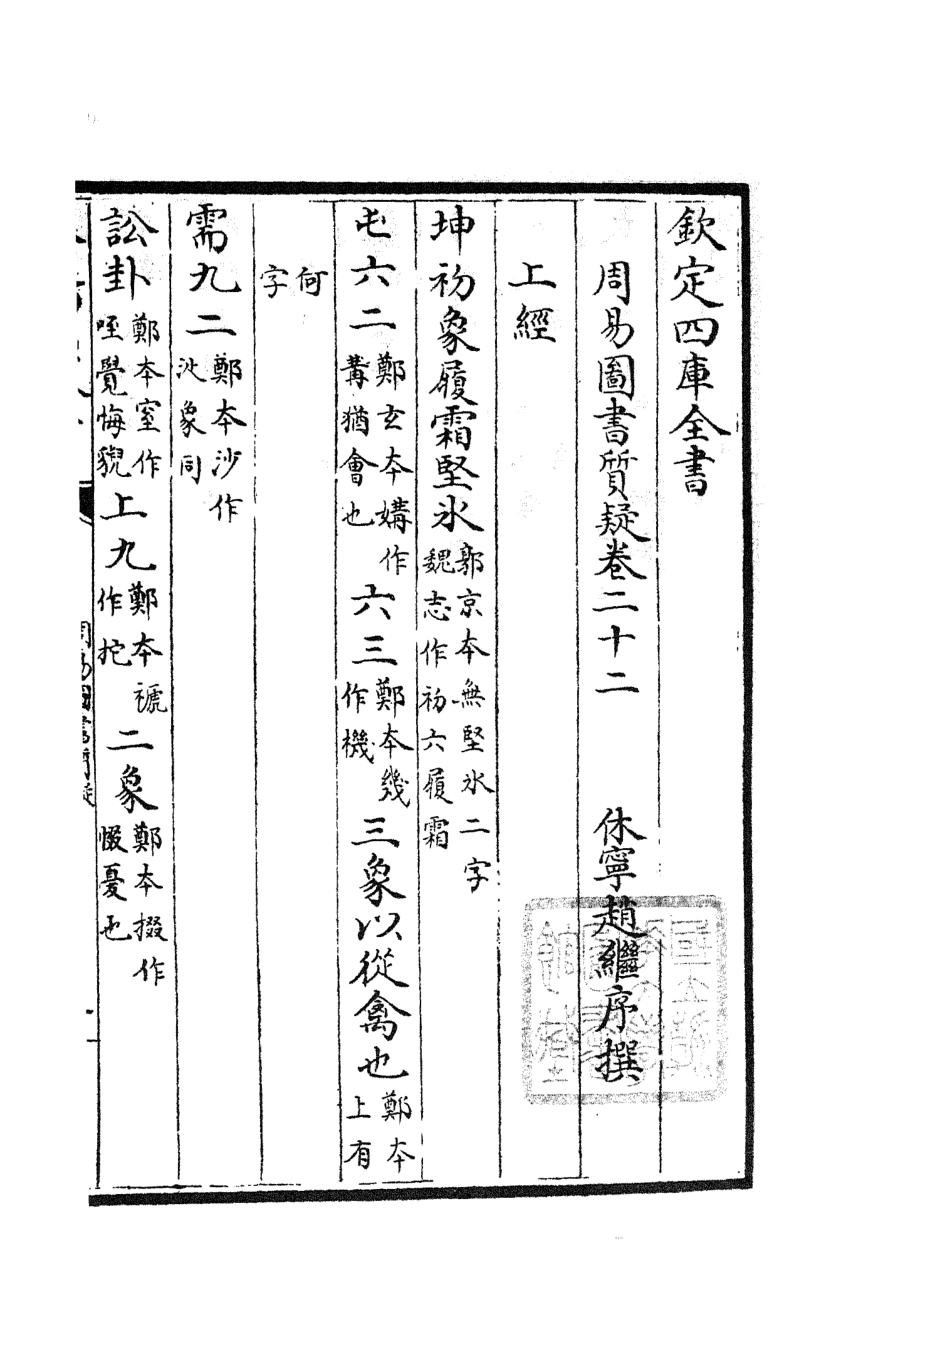 欽定四庫全書
周易圖書質疑卷二十二 休寧趙繼序撰
上經
坤初象履霜堅氷郭京本無堅氷二字魏志作初六履霜
屯六二鄭玄本媾作冓猶會也六三鄭本幾作機三象以從禽也鄭本上有
何字
需九二鄭本沙作沚象同
訟卦鄭本窒作咥覺悔貎上九鄭本褫作拕二象鄭本掇作惙憂也
周易圖書質疑